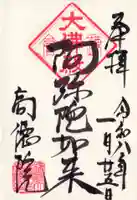 奉拝
令和八年
一月廿五日
大佛
阿弥陀如来
高徳院